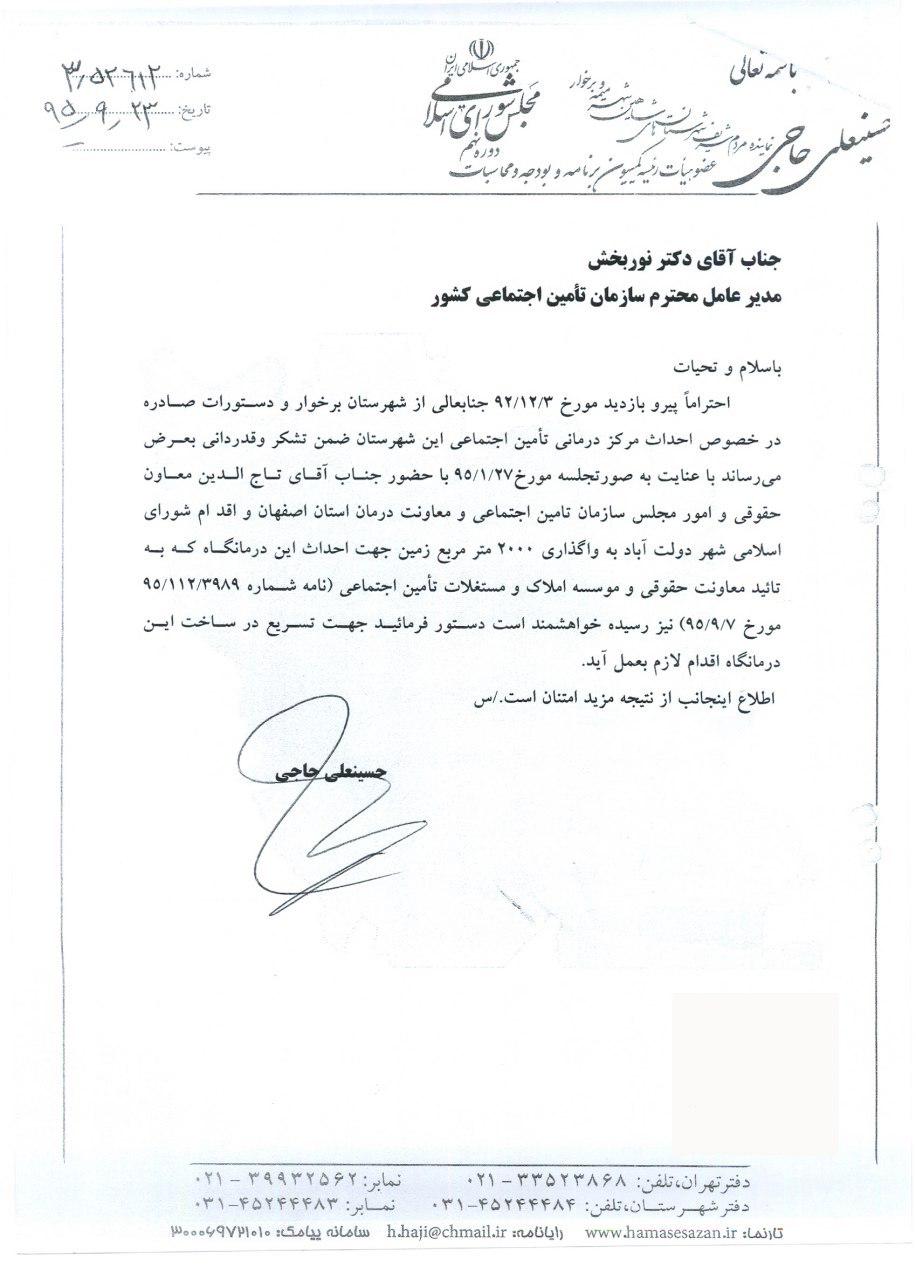 باسمه تعالی
حسینعلی حاجی
نماینده مردم شریف شهرستان های شاهین شهر و میمه و برخوار
عضو هیأت رئیسه کمیسیون برنامه و بودجه و محاسبات
جمهوری اسلامی ایران
مجلس شورای اسلامی
دوره نهم
شماره: ۳/۵۲۶۱۲
تاریخ: ۹۵/۹/۲۳
پیوست:
جناب آقای دکتر نوربخش
مدیر عامل محترم سازمان تأمین اجتماعی کشور
باسلام و تحیات
احتراماً پیرو بازدید مورخ ۹۲/۱۲/۳ جنابعالی از شهرستان برخوار و دستورات صادره
در خصوص احداث مرکز درمانی تأمین اجتماعی این شهرستان ضمن تشکر وقدردانی بعرض
می‌رساند با عنایت به صورتجلسه مورخ۹۵/۱/۲۷ با حضور جناب آقای تاج الدین معاون
حقوقی و امور مجلس سازمان تامین اجتماعی و معاونت درمان استان اصفهان و اقد ام شورای
اسلامی شهر دولت آباد به واگذاری ۲۰۰۰ متر مربع زمین جهت احداث این درمانگاه که به
تائید معاونت حقوقی و موسسه املاک و مستغلات تأمین اجتماعی (نامه شماره ۹۵/۱۱۲/۳۹۸۹
مورخ ۹۵/۹/۷) نیز رسیده خواهشمند است دستور فرمائید جهت تسریع در ساخت این
درمانگاه اقدام لازم بعمل آید.
اطلاع اینجانب از نتیجه مزید امتنان است./س
حسینعلی حاجی
دفترتهران،تلفن: ۳۳۵۲۳۸۶۸ - ۰۲۱ نمابر: ۳۹۹۳۲۵۶۲ - ۰۲۱
دفتر شهرستان،تلفن: ۴۵۲۴۴۴۸۴-۰۳۱ نمابر: ۴۵۲۴۴۴۸۳-۰۳۱
تارنما: www.hamasesazan.ir رایانامه: h.haji@chmail.ir سامانه پیامک: ۳۰۰۰۶۹۷۲۱۰۱۰